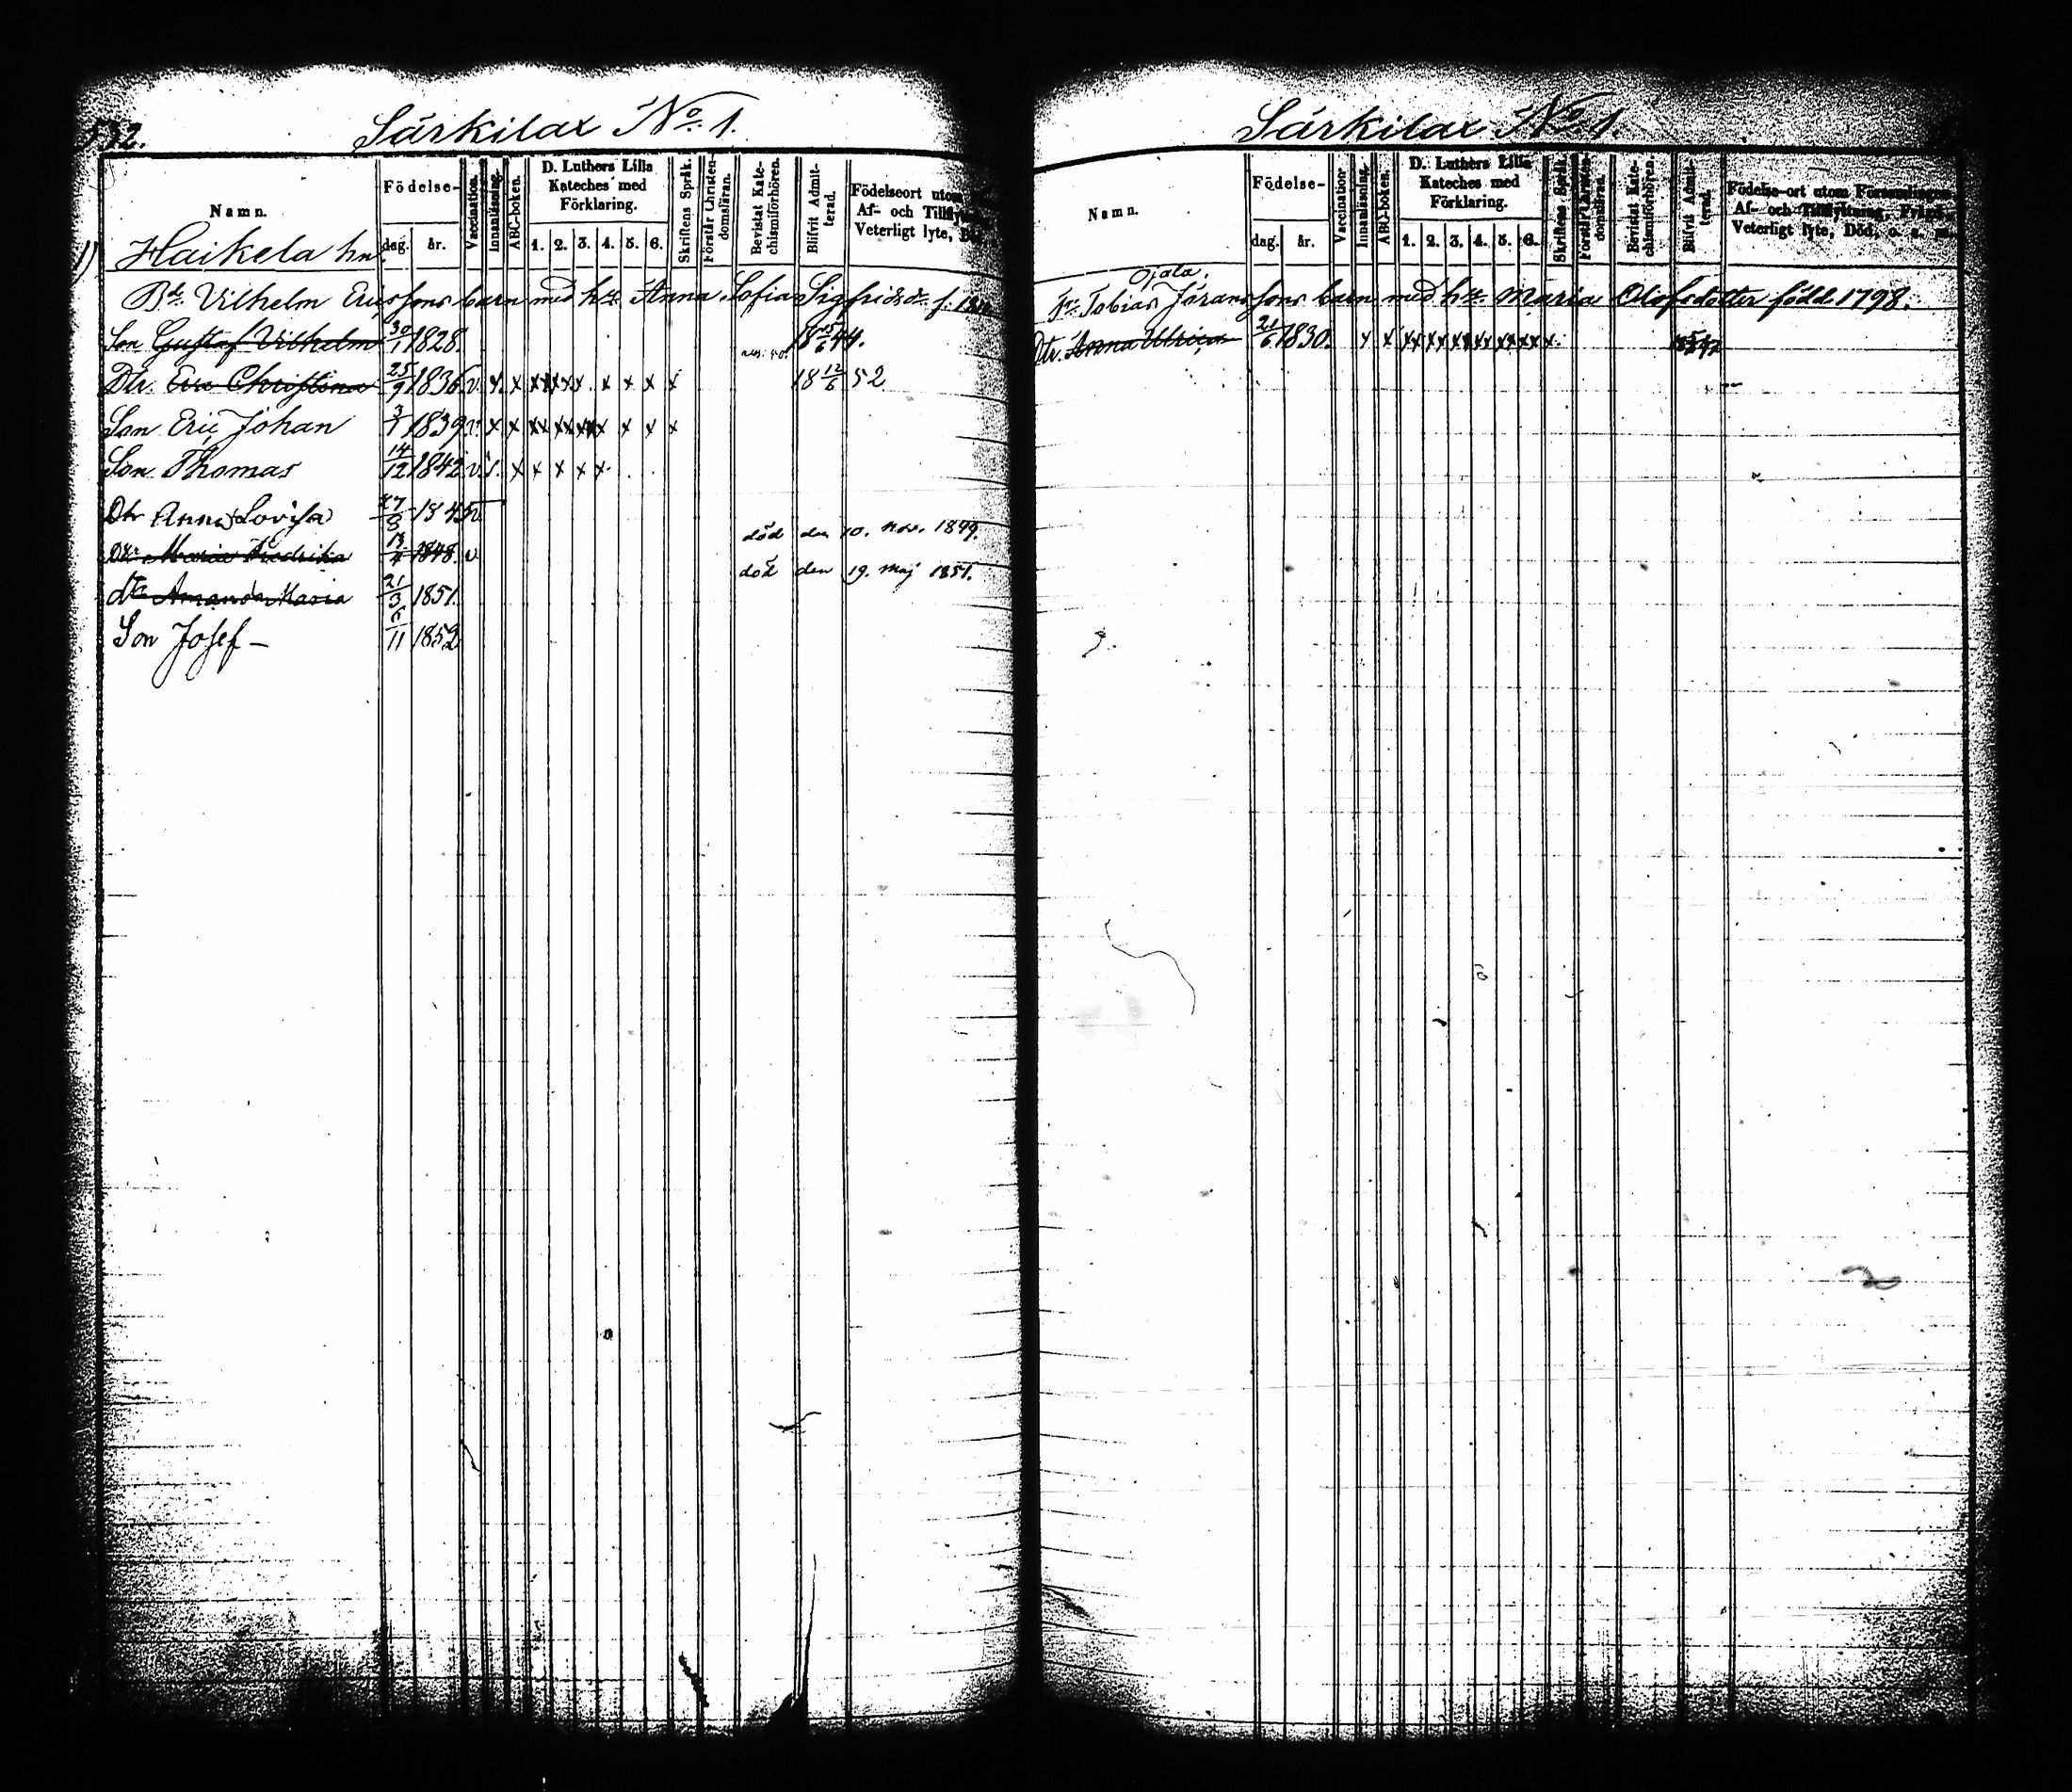 532.
Särkilax No. 1.
Namn.
Födelse-
dag.
år.
Vaccination.
Innanläsning.
ABC-boken.
D. Luthers Lilla
Kateches med
Förklaring.
1. 2. 3. 4. 5. 6.
Skriftens Språk.
Förstår Christen-
domsläran.
Bevistat Kate-
chismiförhören.
Blifvit Admit-
terad.
Födelseort utom
Af- och Tillfly
Veterligt lyte, Dö
1) Haikela hn.
Bd. Vilhelm Ericssons barn med hu Anna Sofia Sigfridsdr f.
Son Gustaf Vilhelm 30/1 1828. 18 15/6 44.
Dtr. Eva Christina 25/9 1836 v. x x x x x x x x x x 18 12/6 52
Son Eric Johan 3/1 1839 v. x x x x x x x x x x
Son Thomas 14/12 1842 v. s. x x x x x
Dtr Anna Lovisa 27/8 1845 v
Dtr Maria Fredrika 13/4 1848. v död den 10. nov. 1849.
dtr Amanda Maria 21/3 1851. död den 19. Maj 1851.
Son Josef - 6/11 1852
Särkilax No. 1.
Namn.
Födelse-
dag.
år.
Vaccination
Innanläsning.
ABC-boken.
D. Luthers Lilla
Kateches med
Förklaring.
1. 2. 3. 4. 5. 6.
Skriftens Språk.
Förstår Christen-
domsläran.
Bevistat Kate-
chismiförhören.
Blifvit Admit-
terad.
Födelse-ort utom Församlingen,
Af- och Tillflyttning, Frägd,
Veterligt lyte, Död, o. s. m.
Ojala.
Tobias Jöranssons barn med hu Maria Olofsdotter född 1798.
Dtr. Anna Ulrica 21/6 1830. x x x x x x x x x x x x x x x